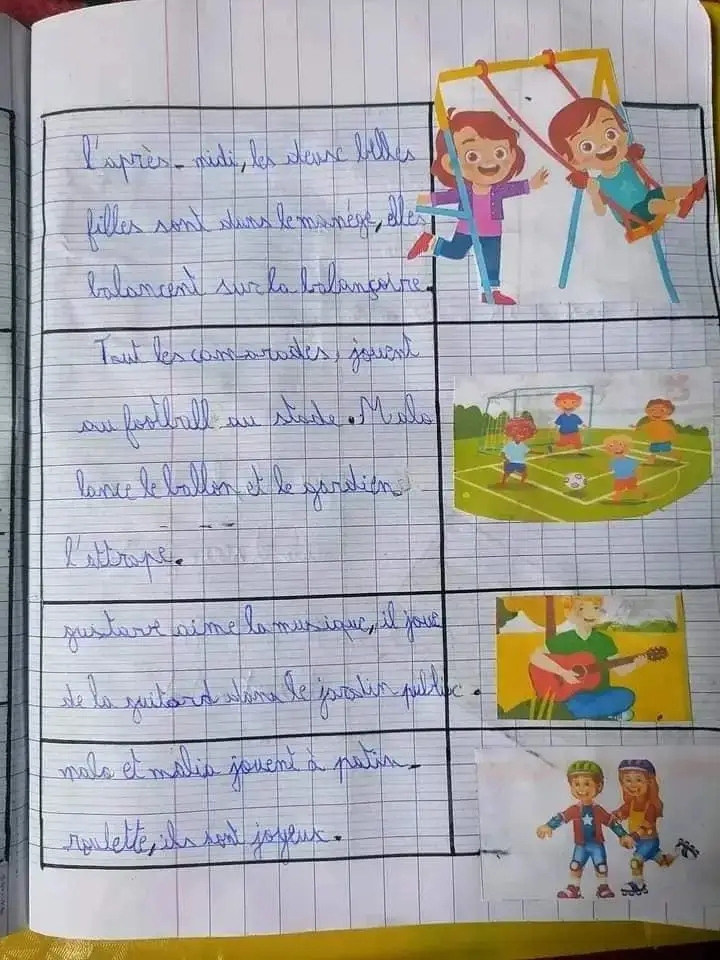 l'après-midi, les deux belles
filles sont dans le manége, elles
balancent sur la balançoire.
Tout les camarades, jouent
au football au stade. Malo
lance le ballon et le gardien
l'attrape.
gustave aime la musique, il joue
de la guitard dans le jardin public.
malo et malia jouent à patin-
roulette, ils sont joyeux.